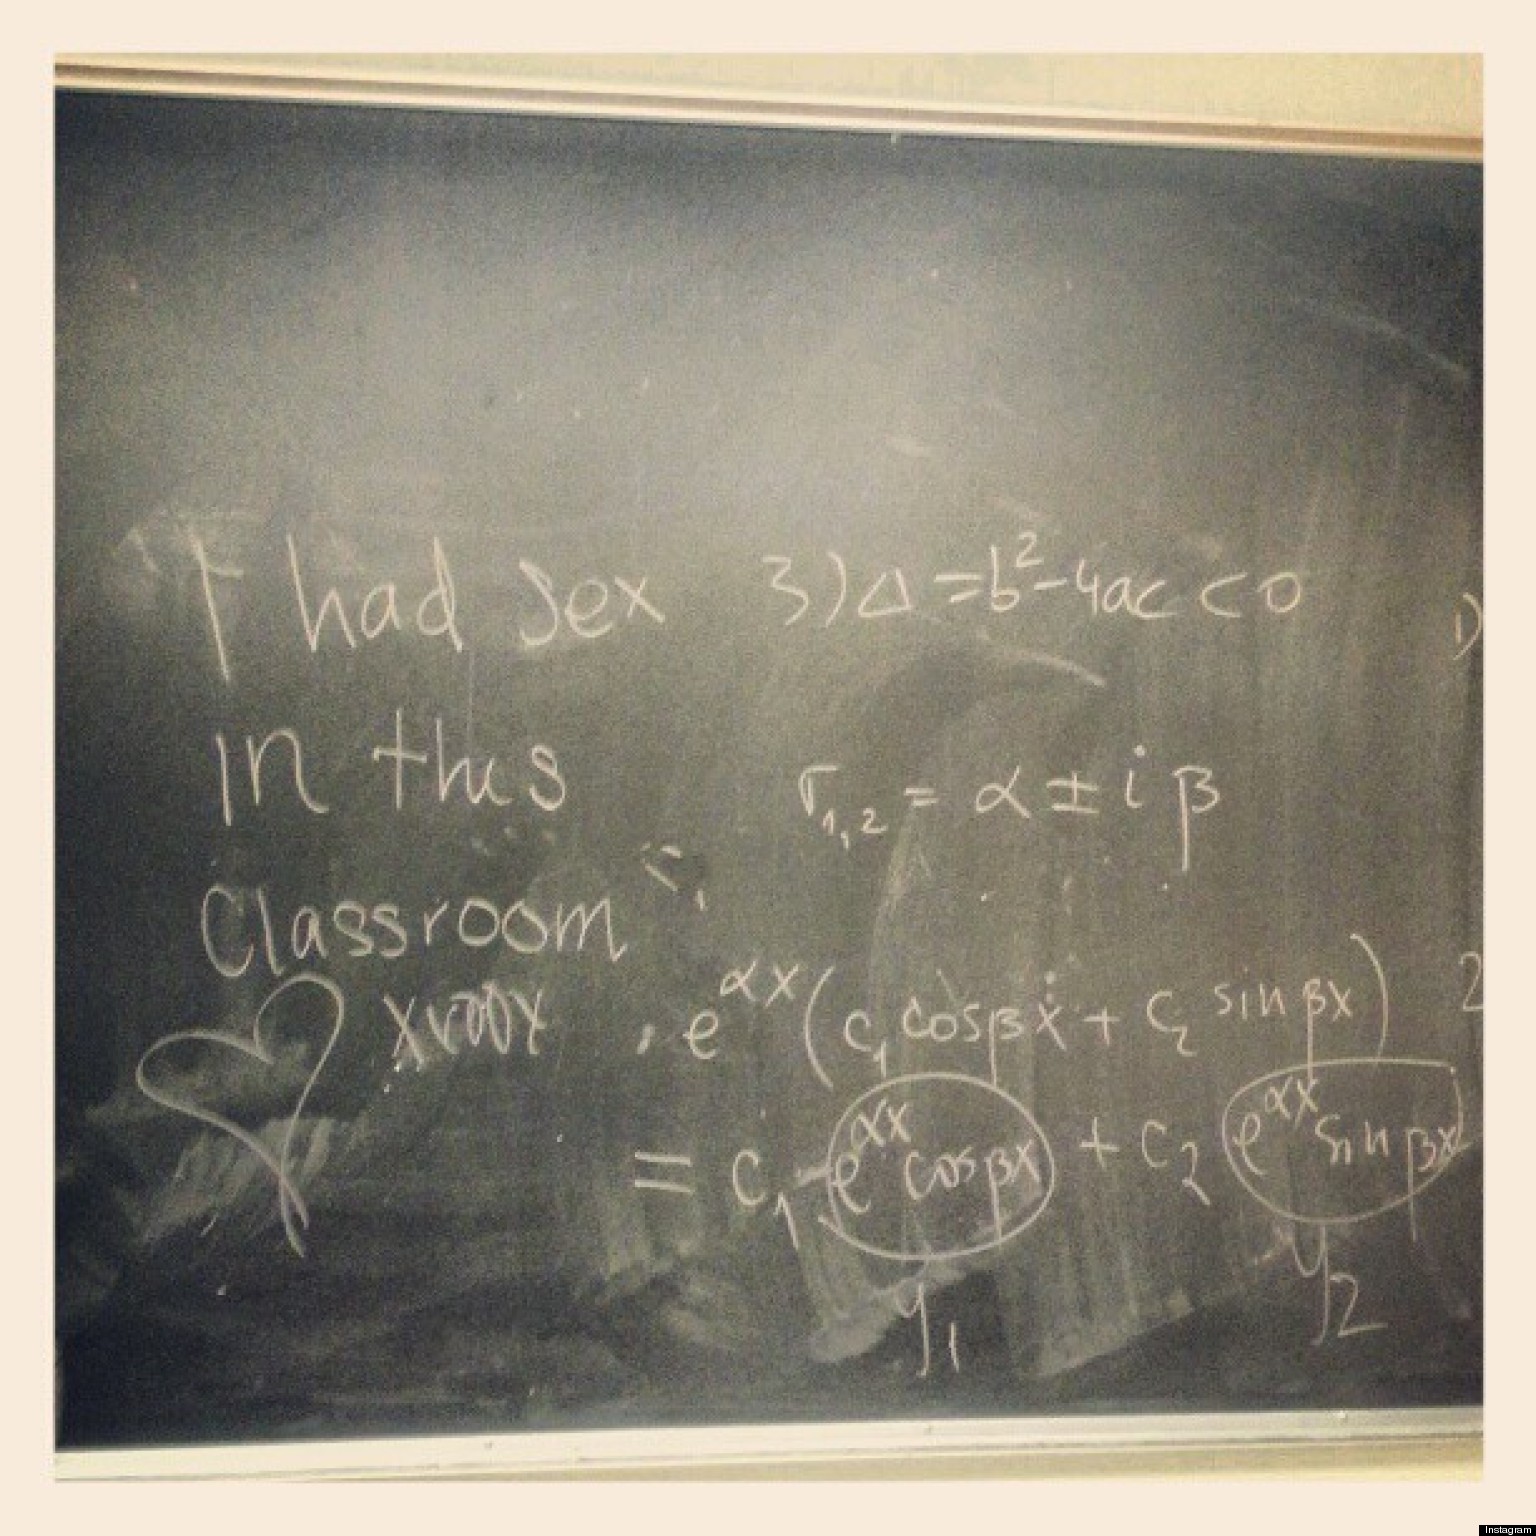 I had sex
in this
Classroom
3) Δ = b² - 4ac < 0
r₁,₂ = α ± i β
e^αx (c₁ cosβx + c₂ sin βx)
= c₁ e^αx cosβx + c₂ e^αx sin βx
y₁
y₂
1)
2
Instagram